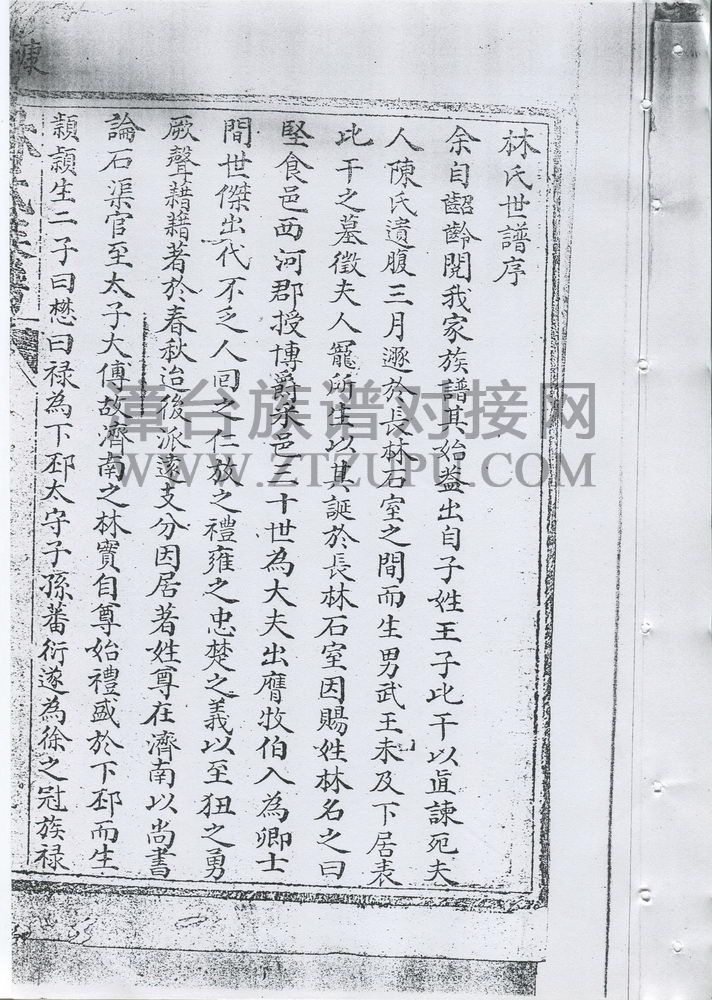 林氏世譜序
余自齠齡閱我家族譜其始葢出自子姓王子比干以直諫死夫
人陳氏遺腹三月遯於長林石室之間而生男武王未及下居表
比干之墓徵夫人寵所生以其誕於長林石室因賜姓林名之曰
堅食邑西河郡授博爵采邑三十世為大夫出膺牧伯入為卿士
間世傑出代不乏人回之仁放之禮雍之忠楚之義以至狃之勇
厥聲藉藉著於春秋迨後派遠支分因居著姓尊在濟南以尚書
論石渠官至太子大傅故濟南之林實自尊始禮盛於下邳而生
頴頴生二子曰懋曰禄為下邳太守子孫蕃衍遂為徐之冠族禄
漳台族谱对接网
WWW.ZTZUPU.COM